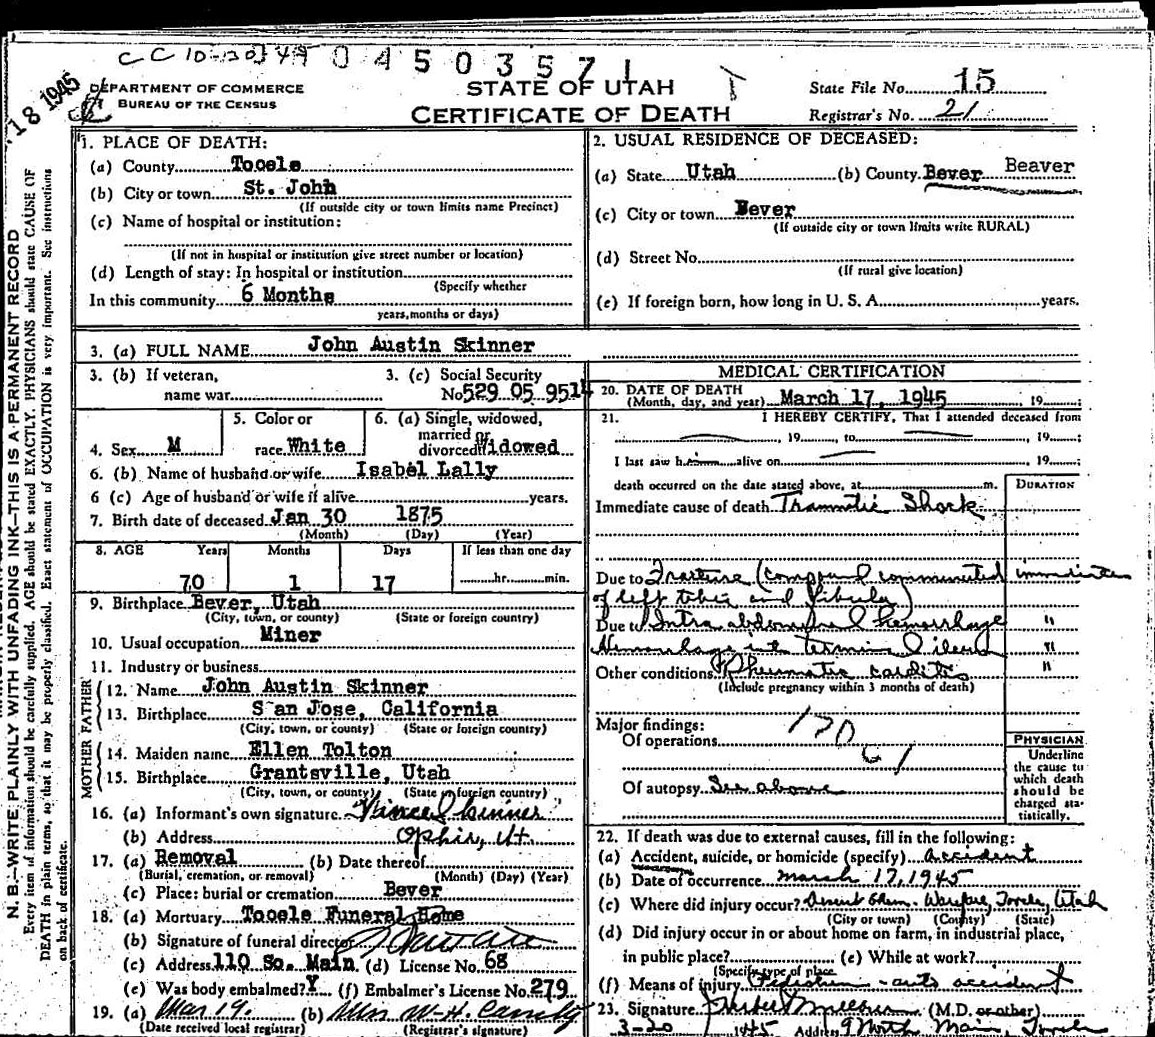 CC 10-20-345 0450357 1
18 1945
DEPARTMENT OF COMMERCE
BUREAU OF THE CENSUS
STATE OF UTAH
CERTIFICATE OF DEATH
State File No. 15
Registrar's No. 21
N. B.—WRITE PLAINLY WITH UNFADING INK—THIS IS A PERMANENT RECORD
Every item of information should be carefully supplied. AGE should be stated EXACTLY. PHYSICIANS should state CAUSE OF
DEATH in plain terms, so that it may be properly classified. Exact statement of OCCUPATION is very important. See instructions
on back of certificate.
1. PLACE OF DEATH:
(a) County Tooele
(b) City or town St. John
(If outside city or town limits name Precinct)
(c) Name of hospital or institution:
(If not in hospital or institution give street number or location)
(d) Length of stay: In hospital or institution
(Specify whether
In this community 6 Months
years, months or days)
2. USUAL RESIDENCE OF DECEASED:
(a) State Utah (b) County Bever Beaver
(c) City or town Bever
(If outside city or town limits write RURAL)
(d) Street No.
(If rural give location)
(e) If foreign born, how long in U. S. A. years.
3. (a) FULL NAME John Austin Skinner
3. (b) If veteran, name war
3. (c) Social Security No 529 05 9514
4. Sex M
5. Color or race White
6. (a) Single, widowed, married or divorced Widowed
6. (b) Name of husband or wife Isabel Lally
6 (c) Age of husband or wife if alive years.
7. Birth date of deceased Jan 30 1875
(Month) (Day) (Year)
8. AGE Years Months Days If less than one day
70 1 17 hr. min.
9. Birthplace Bever, Utah
(City, town, or county) (State or foreign country)
10. Usual occupation Miner
11. Industry or business
FATHER
12. Name John Austin Skinner
13. Birthplace San Jose, California
(City, town, or county) (State or foreign country)
MOTHER
14. Maiden name Ellen Tolton
15. Birthplace Grantsville, Utah
(City, town, or county) (State or foreign country)
16. (a) Informant's own signature Skinner
(b) Address Ophir, Ut.
17. (a) Removal (b) Date thereof
(Burial, cremation, or removal) (Month) (Day) (Year)
(c) Place: burial or cremation Bever
18. (a) Mortuary Tooele Funeral Home
(b) Signature of funeral director
(c) Address 110 So. Main (d) License No. 68
(e) Was body embalmed? Y (f) Embalmer's License No. 279
19. (a) Mar 19. (b) W. H. Cassity
(Date received local registrar) (Registrar's signature)
MEDICAL CERTIFICATION
20. DATE OF DEATH
(Month, day, and year) March 17, 1945 19 ;
21. I HEREBY CERTIFY, That I attended deceased from
, 19 , to , 19 ;
I last saw him alive on , 19 ;
death occurred on the date stated above, at m. DURATION
Immediate cause of death Traumatic Shock
Due to Fracture (compound comminuted immediate
of left tibia and fibula)
Due to Intra abdominal hemorrhage "
Hemorrhage into terminal ileum "
Other conditions Rheumatic carditis "
(Include pregnancy within 3 months of death)
Major findings: 170
Of operations
Of autopsy See above
PHYSICIAN
Underline
the cause to
which death
should be
charged sta-
tistically.
22. If death was due to external causes, fill in the following:
(a) Accident, suicide, or homicide (specify) accident
(b) Date of occurrence March 17, 1945
(c) Where did injury occur? Desert Chem. Warfare, Tooele, Utah
(City or town) (County) (State)
(d) Did injury occur in or about home on farm, in industrial place,
in public place? (e) While at work?
(Specify type of place
(f) Means of injury Pedestrian - auto accident
23. Signature (M.D. or other)
3-20 1945 Address 9 North Main, Tooele